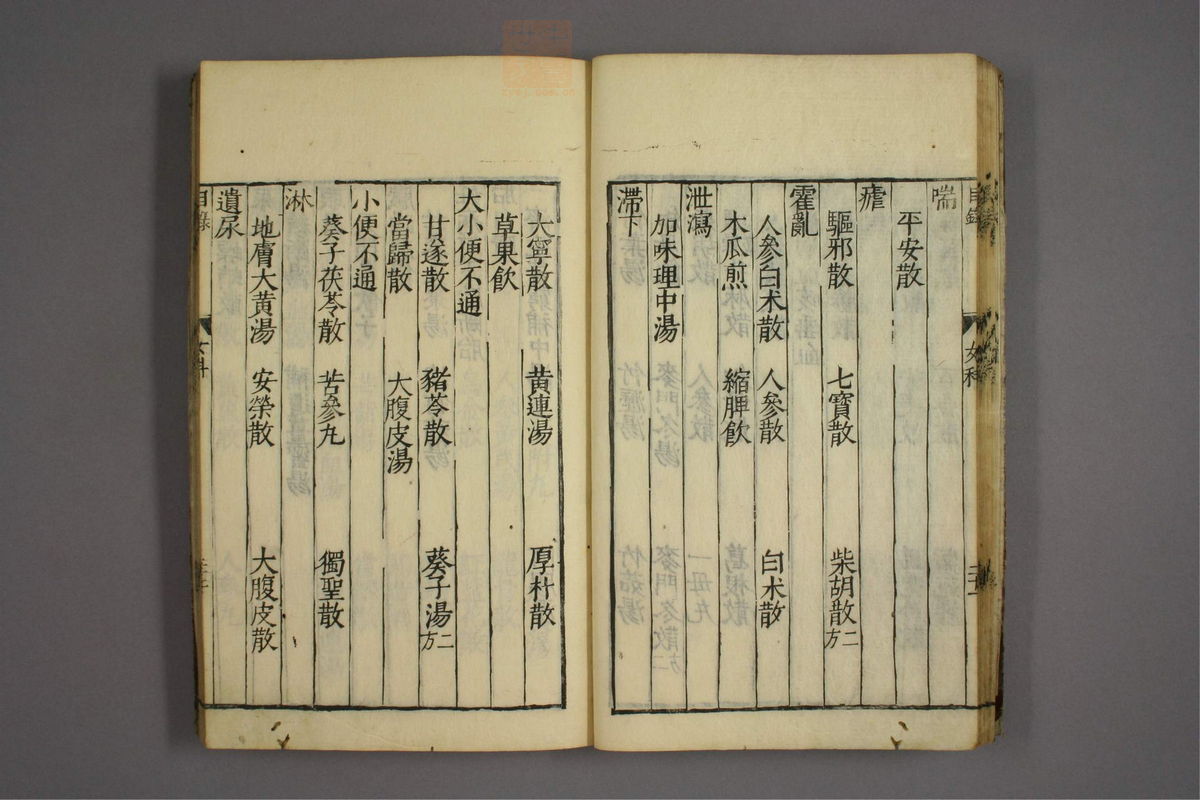 喘
平安散
瘧
驅邪散 七寶散 柴胡散二方
霍亂
人參白朮散 人參散 白朮散
木瓜煎 縮脾飲
泄瀉
加味理中湯
滯下
大寧散 黄連湯 厚朴散
草果飲
大小便不通
甘遂散 豬苓散 葵子湯二方
當歸散 大腹皮湯
小便不通
葵子茯苓散 苦參丸 獨聖散
淋
地膚大黄湯 安榮散 大腹皮散
遺尿
目錄 女科